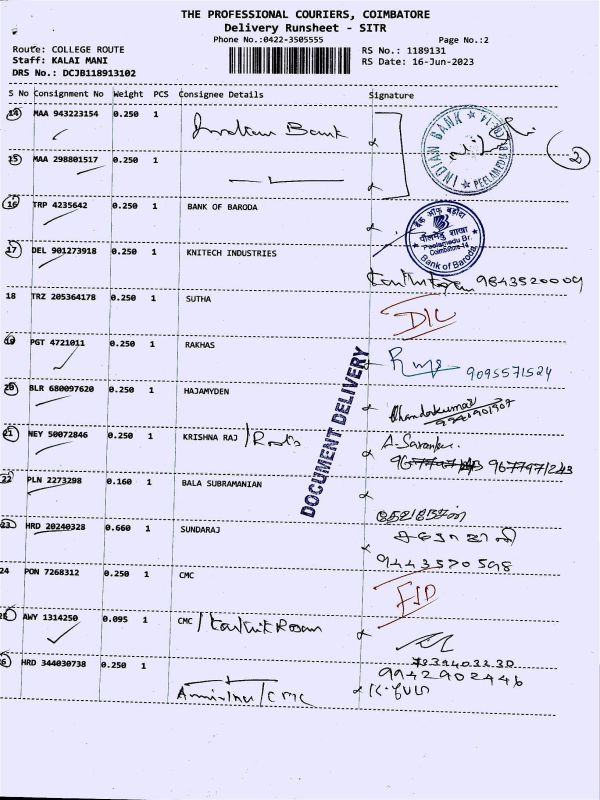 THE PROFESSIONAL COURIERS, COIMBATORE
Delivery Runsheet - SITR
Phone No.:0422-3505555
Page No.:2
Route: COLLEGE ROUTE
RS No.: 1189131
Staff: KALAI MANI
RS Date: 16-Jun-2023
DRS No.: DCJB118913102
S No Consignment No Weight PCS Consignee Details Signature
14 MAA 943223154 0.250 1 Indian Bank
INDIAN BANK
PEELAMEDU BR
2
15 MAA 298801517 0.250 1
16 TRP 4235642 0.250 1 BANK OF BARODA
बैंक ऑफ़ बड़ौदा
पीलमेडु शाखा
Peelamedu Br.
Coimbatore
Bank of Baroda
17 DEL 901273918 0.250 1 KNITECH INDUSTRIES
9843520009
18 TRZ 205364178 0.250 1 SUTHA
D/L
19 PGT 4721011 0.250 1 RAKHAS
9095571524
DOCUMENT DELIVERY
20 BLR 680097620 0.250 1 HAJAMYDEN
21 NEY 50072846 0.250 1 KRISHNA RAJ
A. Saran
9677971243
22 PLN 2273298 0.160 1 BALA SUBRAMANIAN
23 HRD 20240328 0.660 1 SUNDARAJ
9443570598
24 PON 7268312 0.250 1 CMC
25 AWY 1314250 0.095 1 CMC
26 HRD 344030738 0.250 1
9942902446
/CMC